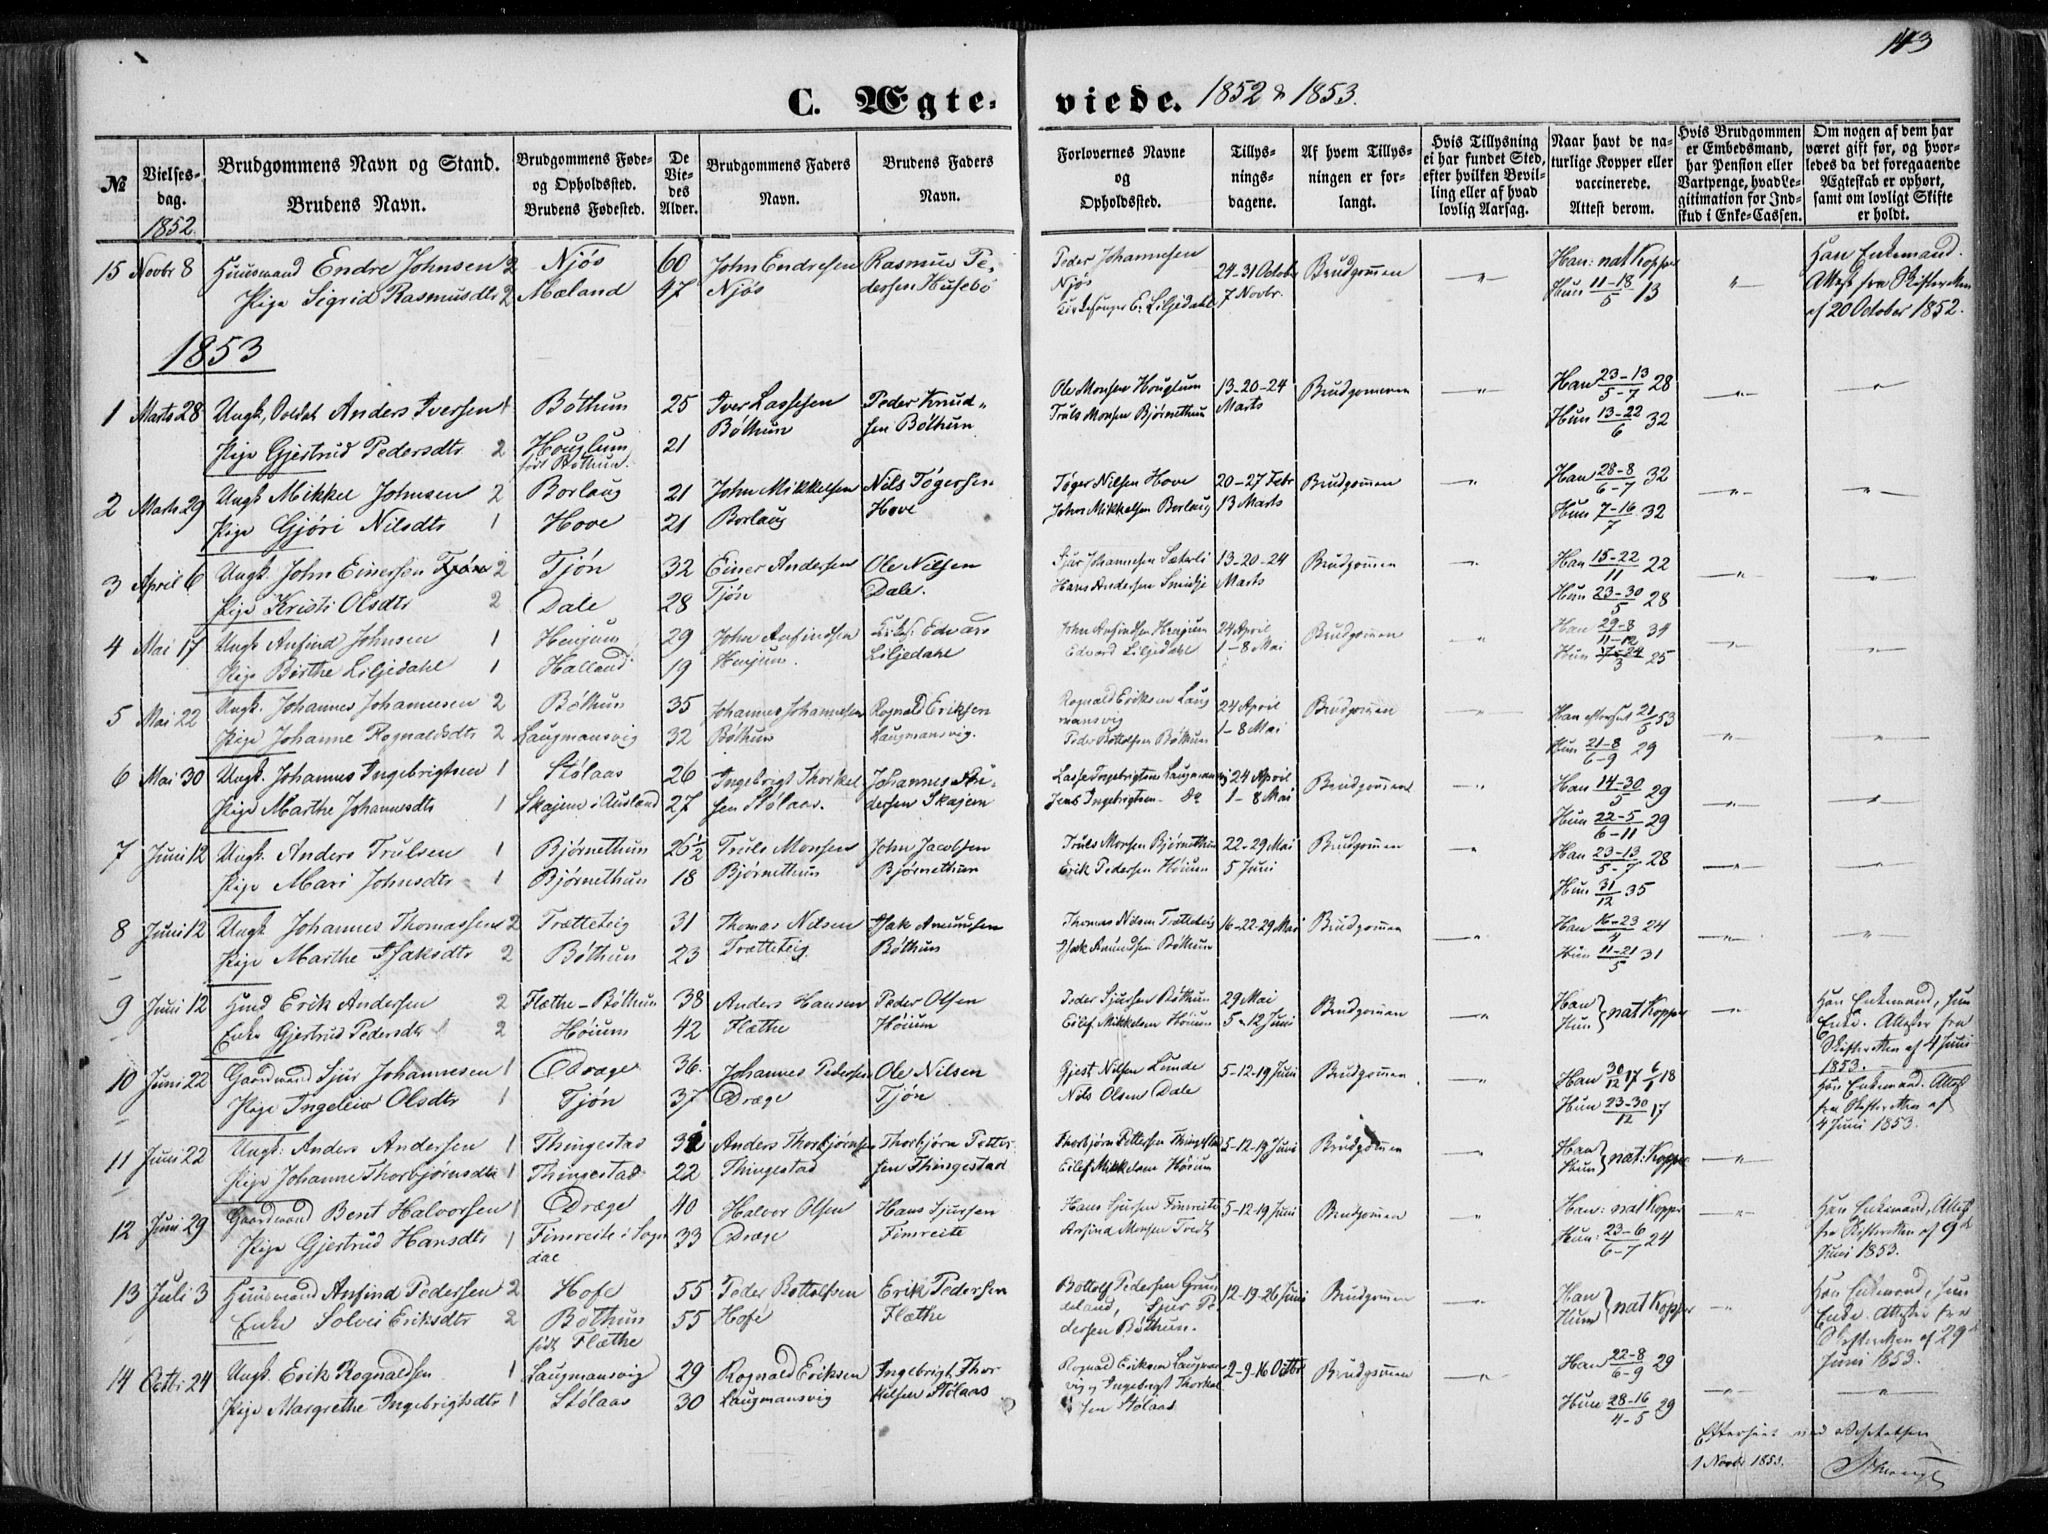 143
C. Ægteviede. 1852 & 1853.
№
Vielsesdag.
1852.
Brudgommens Navn og Stand.
Brudens Navn.
Brudgommens Føde- og Opholdssted.
Brudens Fødested.
De Viedes Alder.
Brudgommens Faders Navn.
Brudens Faders Navn.
Forlovernes Navne og Opholdssted.
Tillysningsdagene.
Af hvem Tillysningen er forlangt.
Hvis Tillysning ei har fundet Sted, efter hvilken Bevilling eller af hvad lovlig Aarsag.
Naar havt de naturlige Kopper eller vaccinerede. Attest derom.
Hvis Brudgommen er Embedsmand, har Pension eller Vartpenge, hvad Legitimation for Indskud i Enke-Cassen.
Om nogen af dem har været gift før, og hvorledes da det foregaaende Ægteskab er ophørt, samt om lovligt Skifte er holdt.
15 Novbr 8 Huusmand Endre Johnsen 2 Njøs 60 John Endresen Rasmus Pe- Peder Johannesen 24-31 October Brudgommen Han: nat Kopper Han Enkemand.
Pige Sigrid Rasmusdtr 2 Mæland 47 Njøs dersen Husebö Njøs 7 Novbr. Hun 11-18/5 13 Attest fra Skifteretten
Kirkesanger E. Liljedahl af 20 October 1852.
1853
1 Marts 28 Ungk, Soldat Anders Iversen 1 Böthun 25 Iver Lassesen Peder Knud- Ole Monsen Houglum 13-20-24 Brudgommen Han 23-13/5-7 28
Böthun sen Böthun Truls Monsen Bjørnethun Marts Hun 13-22/6 32
Pige Gjertrud Pedersdtr 2 Houglum 21
født Böthun.
2 Marts 29 Ungk Mikkel Johnsen 2 Borlaug 21 John Mikkelsen Nils Tøgersen Tøger Nilsen Hove 20-27 Febr Brudgommen Han 28-8/6-7 32
Pige Gjøri Nilsdtr 1 Hove 21 Borlaug Hove John Mikkelsen Borlaug 13 Marts Hun 7-16/7 32
3 April 6 Ungk. John Einersen Tjøn 2 Tjøn 32 Einer Andersen Ole Nilsen Sjur Johannesen Sæterli 13-20-24 Brudgommen Han 15-22/11 22
Pige Kristi Olsdtr 2 Dale 28 Tjøn Dale. Hans Andersen Smidje Marts Hun 23-30/5 28
4 Mai 17 Ungk Anfind Johnsen 1 Henjum 29 John Anfindsen Edvard John Anfindsen Henjum 24 April Brudgommen Han 29-8/11-12 34
Pige Birthe Liljedahl 1 Halland 19 Henjum. Liljedahl Edvard Liljedahl 1-8 Mai Hun 17-24/3 25
5 Mai 22 Ungk. Johannes Johannesen 2 Böthun 35 Johannes Johannesen Rognald Eriksen Rognald Eriksen Laug 24 April Brudgommen Han 21/5 53
mansvig
Pige Johanne Rognaldsdtr 2 Laugmansvig 32 Böthun Laugmansvig. Peder Bottolfsen Böthun 1-8 Mai Hun 21-8/6-9 29
6 Mai 30 Ungk. Johannes Ingebrigtsen 1 Stølaas 26 Ingebrigt Thorkel Johannes An- Lasse Ingebrigtsen Laugmansvig 24 April Brudgommen Han 14-30/5 29
Pige Marthe Johannesdtr 1 Skajem i Ausland 27 sen Stølaas. dersen Skajem Jens Ingebrigtsen do 1-8 Mai Hun 22-5/6-11 29
7 Juni 12 Ungk. Anders Trulsen 1 Bjørnethun 26½ Truls Monsen John Jacobsen Truls Monsen Bjørnethun 22-29 Mai Brudgommen Han 23-13/5-7 28
Pige Mari Johnsdtr 1 Bjørnethun 18 Bjørnethun Bjørnethun Erik Pedersen Høium 5 Juni Hun 31/12 35
8 Juni 12 Ungk Johannes Thomassen 2 Trætteteig 31 Thomas Nilsen Isak Amundsen Thomas Nilsen Trætteteig 16-22-29 Mai Brudgommen Han 16-23/4 24
Pige Marthe Isaksdtr 2 Böthun 23 Trætteteig Böthun Isak Amundsen Böthun Hun 11-21/5 31
9 Juni 12 Hmd Erik Andersen 2 Flæthe-Böthun 38 Anders Hansen Peder Olsen Peder Sjursen Böthun 29 Mai Brudgommen Han Han Enkemand, Hun
Enke Gjertrud Pedersdtr 2 Høium 42 Flæthe Høium Eilef Mikkelsen Høium 5-12 Juni Hun nat Kopper Enke. Attester fra
Skifteretten af 4 Juni
1853.
10 Juni 22 Gaardmand Sjur Johannesen 1 Dræge 36. Johannes Pedersen Ole Nilsen Gjest Nilsen Lunde 5-12-19 Juni Brudgommen Han 30/12 17 6/1 18 Han Enkemand. Attest
Pige Ingeleiv Olsdtr 1 Tjøn 37 Dræge Tjøn Nils Olsen Dale Hun 23-30/12 17 fra Skifteretten af
4 Juni 1853.
11 Juni 22 Ungk. Anders Andersen 1 Thingestad Anders Thorbjørnsen Thorbjørn Petter- Thorbjørn Pettersen Thingestad 5-12-19 Juni Brudgommen Han
Pige Johanne Thorbjørnsdtr 1 Thingestad 22 Thingestad sen Thingestad Eilef Mikkelsen Høium Hun nat: Kopper
12 Juni 29 Gaardmand Bent Halvorsen 1 Dræge 40 Halvor Olsen Hans Sjursen Hans Sjursen Fimreite 5-12-19 Juni Brudgommen Han: nat Kopper Han Enkemand, Attest
Pige Gjertrud Hansdtr 1 Fimreite i Sogn 33 Dræge Fimreite Anfind Monsen Tredt Hun: 23-6/6-7 24 fra Skifteretten af 9de
dal Juni 1853.
13 Juli 3 Huusmand Anfind Pedersen 2 Hofe 55 Peder Bottolfsen Erik Pedersen Bottolf Pedersen Grun 12-19-26 Juni Brudgommen Han Han Enkemand, Hun
Enke Solvei Eriksdtr 2 Böthun 55 Hofe Flæthe deland, Sjur Pe Hun nat Kopper Enke. Attester fra
født Flæthe dersen Böthun. Skifteretten af 29de
Juni 1853.
14 Octbr 24 Ungk. Erik Rognaldsen 1 Laugmansvig 29 Rognald Eriksen Ingebrigt Thor- Rognald Eriksen Laugman 2-9-16 Octbr Brudgommen Han 22-8/6-9 29
Pige Margrethe Ingebrigtsdtr 1 Stølaas 30 Laugmansvig kilsen Stølaas vig og Ingebrigt Thorkel Hun 28-16/4-5 29
sen Stølaas
Efterseet ved Visitatsen
1 Novbr 1853.